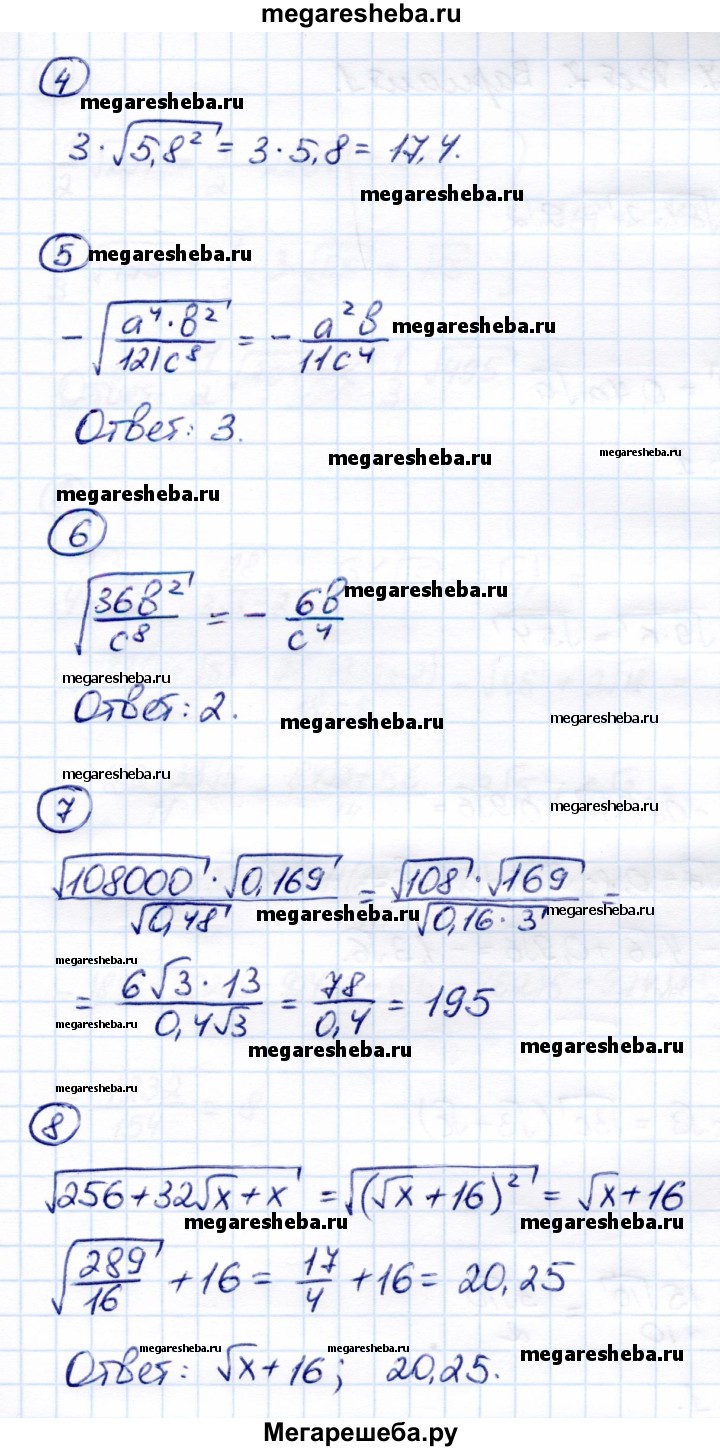 megaresheba.ru
4
megaresheba.ru
3 · √5,8² = 3 · 5,8 = 17,4.
megaresheba.ru
5 megaresheba.ru
-√(a⁴·b²/121c⁸) = - a²b/11c⁴ megaresheba.ru
Ответ: 3.
megaresheba.ru megaresheba.ru
megaresheba.ru
6
√(36b²/c⁸) = - 6b/c⁴ megaresheba.ru
megaresheba.ru
Ответ: 2. megaresheba.ru megaresheba.ru
megaresheba.ru
7 megaresheba.ru
√108000 · √0,169 / √0,48 = √108 · √169 / √0,16 · 3 =
megaresheba.ru megaresheba.ru
megaresheba.ru
= 6√3 · 13 / 0,4√3 = 78/0,4 = 195
megaresheba.ru
megaresheba.ru megaresheba.ru
megaresheba.ru
8
√256+32√x+x = √(√x+16)² = √x+16
megaresheba.ru megaresheba.ru
√(289/16) + 16 = 17/4 + 16 = 20,25
megaresheba.ru megaresheba.ru megaresheba.ru
Ответ: √x+16; 20,25.
Мегарешеба.ру